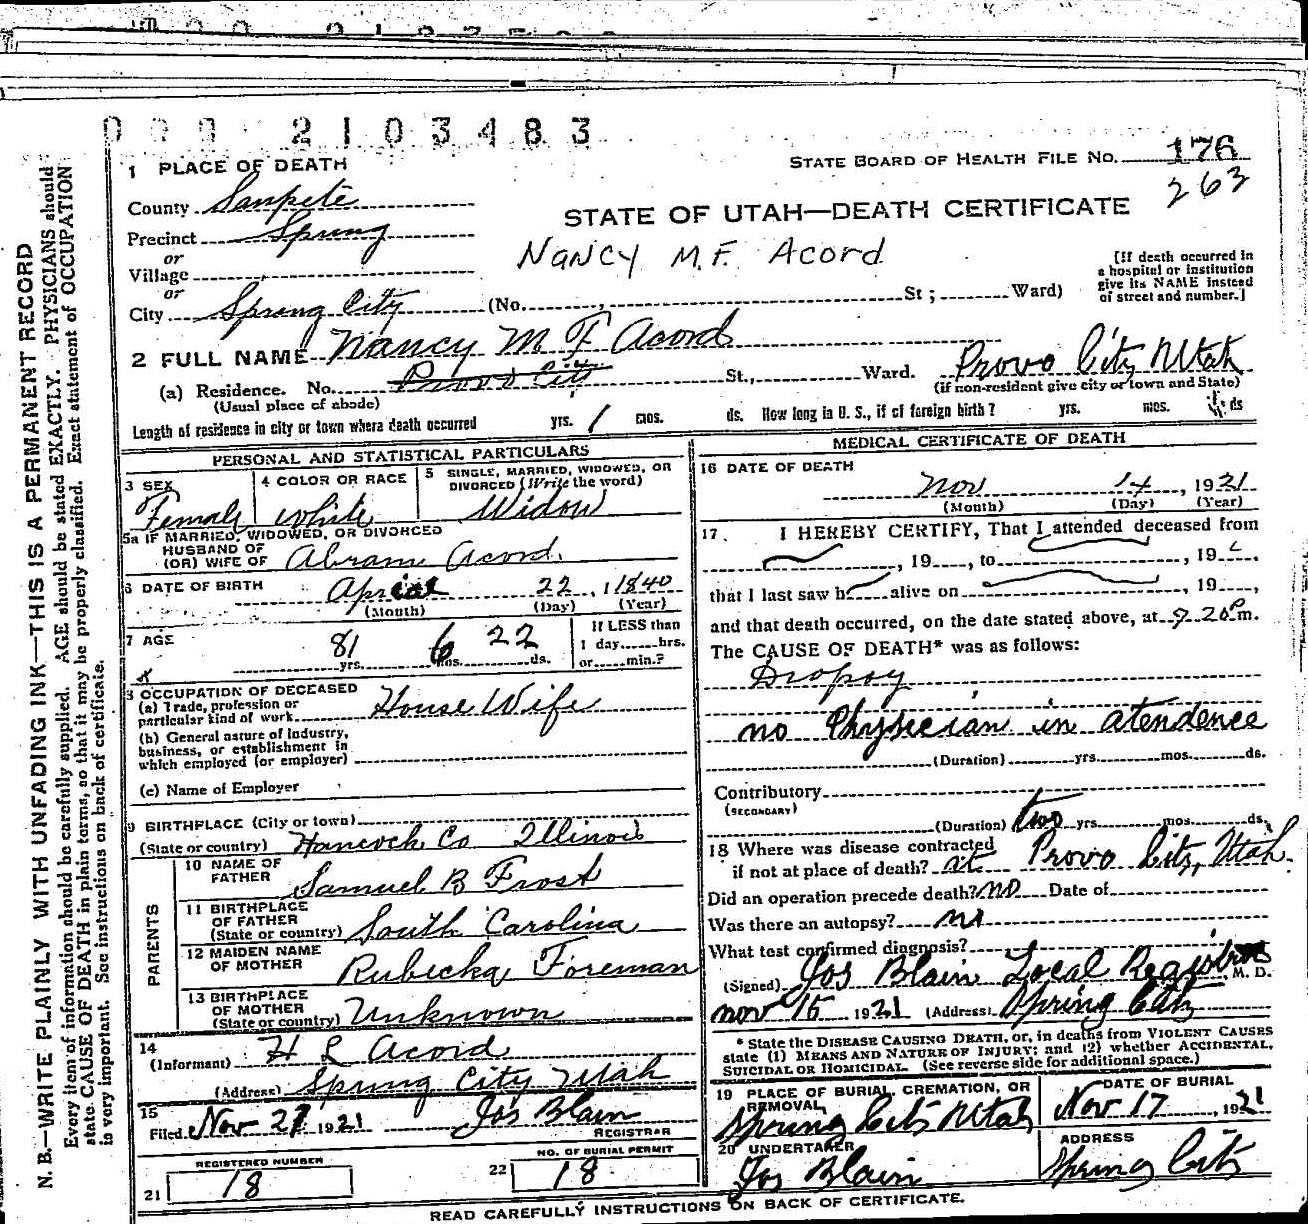 000 2103483
1 PLACE OF DEATH
STATE BOARD OF HEALTH FILE NO. 176
263
County Sanpete
STATE OF UTAH—DEATH CERTIFICATE
Precinct Spring
or
Nancy M.F. Acord
Village
or
City Spring City (No. , St; Ward)
[If death occurred in
a hospital or institution
give its NAME instead
of street and number.]
2 FULL NAME Nancy M F Acord
(a) Residence. No. Provo City St., Ward. Provo City Utah
(Usual place of abode)
(if non-resident give city or town and State)
Length of residence in city or town where death occurred yrs. 1 mos. ds. How long in U. S., if of foreign birth? yrs. mos. ds
PERSONAL AND STATISTICAL PARTICULARS
3 SEX
Female
4 COLOR OR RACE
White
5 SINGLE, MARRIED, WIDOWED, OR
DIVORCED (Write the word)
Widow
5a IF MARRIED, WIDOWED, OR DIVORCED
HUSBAND OF
(OR) WIFE OF Abram Acord.
6 DATE OF BIRTH April 22, 1840
(Month) (Day) (Year)
7 AGE
81 yrs. 6 mos. 22 ds.
If LESS than
1 day hrs.
or min.?
8 OCCUPATION OF DECEASED
(a) Trade, profession or
particular kind of work House Wife
(b) General nature of industry,
business, or establishment in
which employed (or employer)
(c) Name of Employer
9 BIRTHPLACE (City or town)
(State or country) Hancock Co Illinois
PARENTS
10 NAME OF
FATHER Samuel B Frost
11 BIRTHPLACE
OF FATHER
(State or country) South Carolina
12 MAIDEN NAME
OF MOTHER Rubecka Foreman
13 BIRTHPLACE
OF MOTHER
(State or country) Unknown
14
(Informant) H L Acord
(Address) Spring City Utah
15
Filed Nov 21 1921 Jos Blain
REGISTRAR
REGISTERED NUMBER
21 18
NO. OF BURIAL PERMIT
22 18
MEDICAL CERTIFICATE OF DEATH
16 DATE OF DEATH
Nov 14, 1921
(Month) (Day) (Year)
17. I HEREBY CERTIFY, That I attended deceased from
, 19 , to , 19
that I last saw h alive on , 19 ,
and that death occurred, on the date stated above, at 9 20 P m.
The CAUSE OF DEATH* was as follows:
Dropsy
no Physician in atendence
(Duration) yrs. mos. ds.
Contributory
(SECONDARY)
(Duration) two yrs mos. ds.
18 Where was disease contracted
if not at place of death? at Provo City, Utah.
Did an operation precede death? no Date of
Was there an autopsy? no
What test confirmed diagnosis?
(Signed) Jos Blain Local Registrar M. D.
Nov 15 1921 (Address) Spring City
* State the DISEASE CAUSING DEATH, or, in deaths from VIOLENT CAUSES
state (1) MEANS AND NATURE OF INJURY; and (2) whether ACCIDENTAL,
SUICIDAL OR HOMICIDAL. (See reverse side for additional space.)
19 PLACE OF BURIAL, CREMATION, OR
REMOVAL
Spring City Utah
DATE OF BURIAL
Nov 17, 1921
20 UNDERTAKER
Jos Blain
ADDRESS
Spring City
READ CAREFULLY INSTRUCTIONS ON BACK OF CERTIFICATE.
N. B.—WRITE PLAINLY WITH UNFADING INK—THIS IS A PERMANENT RECORD
Every item of information should be carefully supplied. AGE should be stated EXACTLY. PHYSICIANS should
state CAUSE OF DEATH in plain terms, so that it may be properly classified. Exact statement of OCCUPATION
is very important. See instructions on back of certificate.